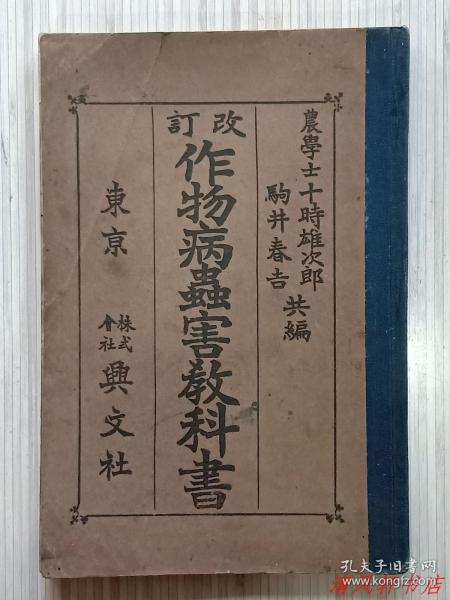 農學士十時雄次郎
駒井春吉 共編
改訂
作物病蟲害教科書
東京 株式會社 興文社
孔夫子旧书网
www.kongfz.com